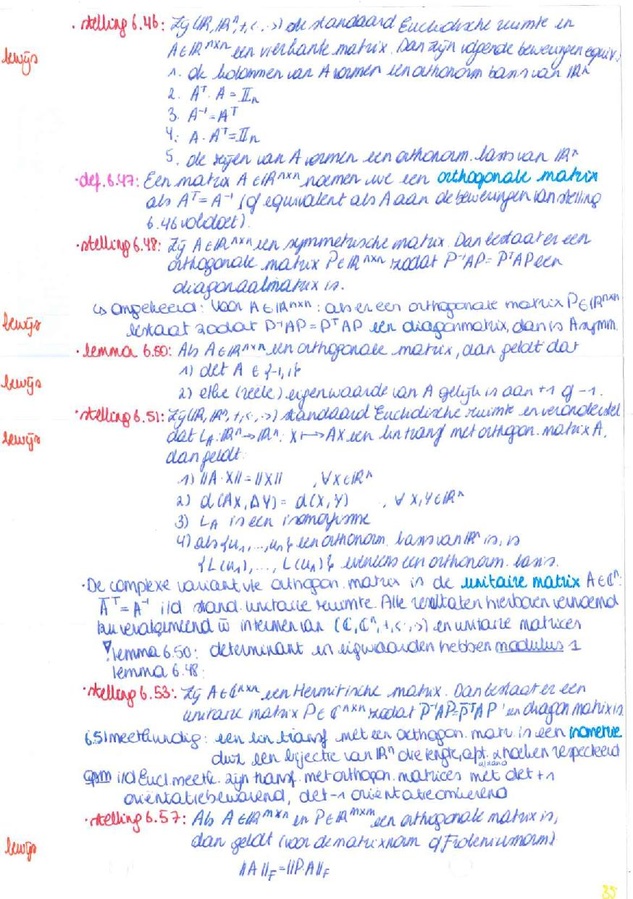 · stelling 6.46: Zij (ℝ, ℝⁿ, +, <·,·>) de standaard Euclidische ruimte en
bewijs
A ∈ ℝⁿˣⁿ een vierkante matrix. Dan zijn volgende beweringen equiv:
1. de kolommen van A vormen een orthonorm basis van ℝⁿ
2. Aᵀ · A = 𝕀ₙ
3. A⁻¹ = Aᵀ
4. A · Aᵀ = 𝕀ₙ
5. de rijen van A vormen een orthonorm. basis van ℝⁿ
· def. 6.47: Een matrix A ∈ ℝⁿˣⁿ noemen we een orthogonale matrix
als Aᵀ = A⁻¹ (of equivalent als A aan de beweringen van stelling
6.46 voldoet).
· stelling 6.48: Zij A ∈ ℝⁿˣⁿ een symmetrische matrix. Dan bestaat er een
orthogonale matrix P ∈ ℝⁿˣⁿ zodat P⁻¹AP = PᵀAP een
diagonaalmatrix is.
↳ omgekeerd: voor A ∈ ℝⁿˣⁿ: als er een orthogonale matrix P ∈ ℝⁿˣⁿ
bewijs
bestaat zodat P⁻¹AP = PᵀAP een diagonmatrix, dan is A symm.
· lemma 6.50: Als A ∈ ℝⁿˣⁿ een orthogonale matrix, dan geldt dat
bewijs
1) det A ∈ {-1, 1}
2) elke (reële) eigenwaarde van A gelijk is aan +1 of -1.
· stelling 6.51: Zij (ℝ, ℝⁿ, +, <·,·>) standaard Euclidische ruimte en veronderstel
bewijs
dat L_A: ℝⁿ → ℝⁿ: X ↦ AX een lin transf met orthogon. matrix A,
dan geldt:
1) ||A·X|| = ||X|| , ∀ X ∈ ℝⁿ
2) d(AX, AY) = d(X, Y) , ∀ X, Y ∈ ℝⁿ
3) L_A is een isomorfisme
4) als {u₁, ..., uₙ} een orthonorm. basis van ℝⁿ is, is
{L(u₁), ..., L(uₙ)} eveneens een orthonorm. basis.
· De complexe variant vd orthogon. matrix is de unitaire matrix A ∈ ℂⁿ:
A̅ᵀ = A⁻¹ i/d stand. unitaire ruimte. Alle resultaten hierboven vernoemd
kun veralgemeend w in termen van (ℂ, ℂⁿ, +, <·,·>) en unitaire matrices
! lemma 6.50: determinant en eigwaarden hebben modulus 1
lemma 6.48:
· stelling 6.53: Zij A ∈ ℂⁿˣⁿ een Hermitische matrix. Dan bestaat er een
unitaire matrix P ∈ ℂⁿˣⁿ zodat P⁻¹AP = P̅ᵀAP een diagon matrix is
6.51 meetkundig: een lin transf met een orthogon. matr. is een isometrie
dwz een bijectie van ℝⁿ die lengte, afst. & hoeken respecteert
opm i/d Eucl. meetk. zijn transf. met orthogon. matrices met det +1
oriëntatiebewarend, det -1 oriëntatieomkerend
· stelling 6.57: Als A ∈ ℝᵐˣⁿ en P ∈ ℝᵐˣᵐ een orthogonale matrix is,
dan geldt (voor de matrixnorm of Frobeniusnorm)
bewijs
||A||_F = ||PA||_F
35